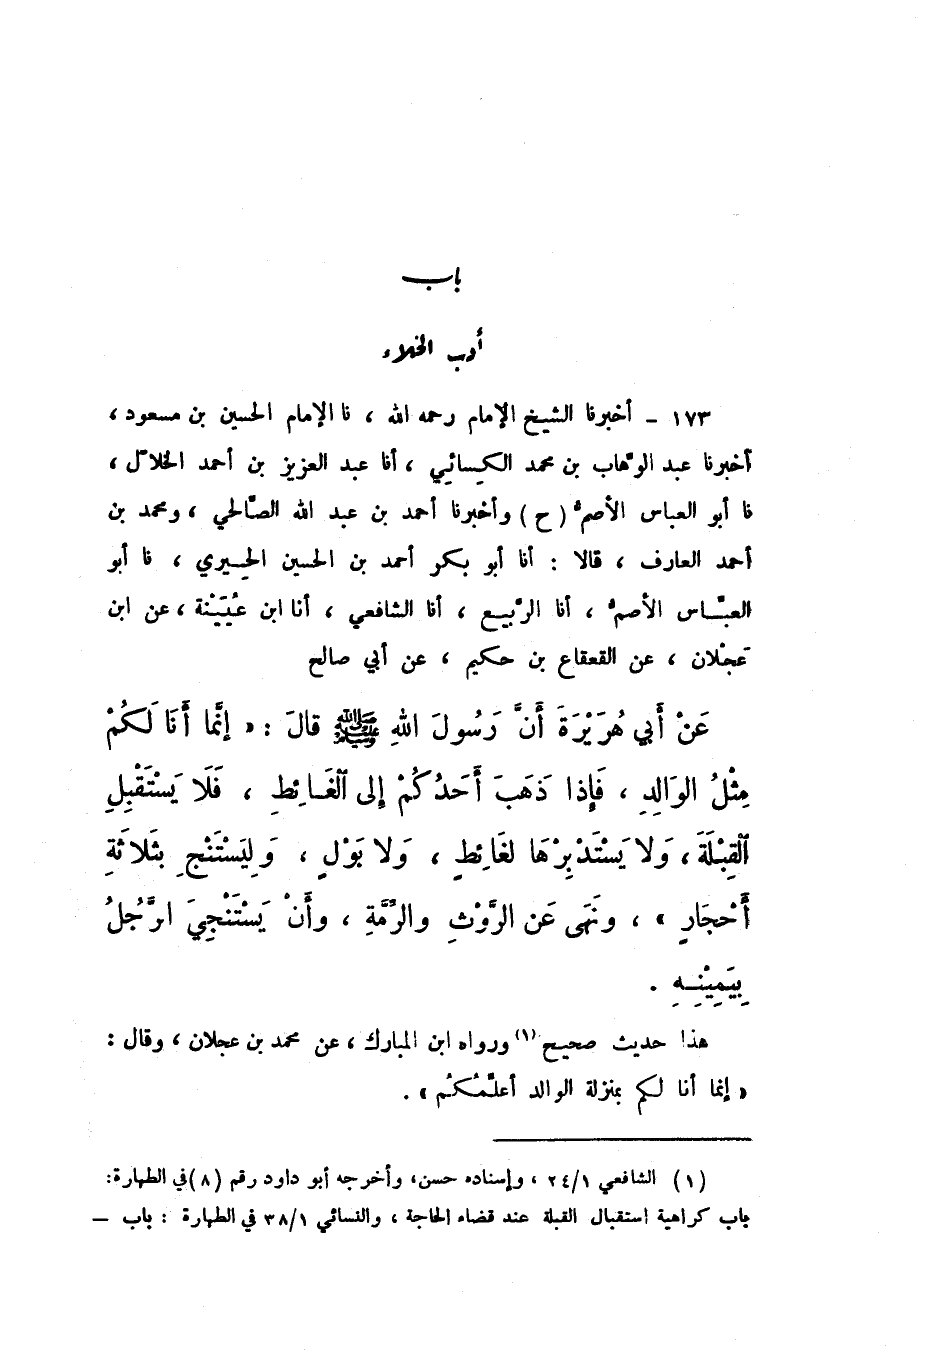 باب
أدب الخلاء
١٧٣ ـ أخبرنا الشيخ الإمام رحمه الله ، نا الإمام الحسين بن مسعود ،
أخبرنا عبد الوّهاب بن محمد الكسائي ، أنا عبد العزيز بن أحمد الخلاّل ،
نا أبو العباس الأصمُّ (ح) وأخبرنا أحمد بن عبد الله الصّالحي ، ومحمد بن
أحمد العارف ، قالا : أنا أبو بكر أحمد بن الحسين الحيري ، نا أبو
العبّاس الأصمُّ ، أنا الرّبيع ، أنا الشافعي ، أنا ابن عُيَيْنة ، عن ابن
عَجْلان ، عن القعقاع بن حكيم ، عن أبي صالح
عَنْ أَبي هُرَيْرَةَ أَنَّ رَسُولَ اللهِ ﷺ قالَ : « إنَّما أَنَا لَكُمْ
مِثْلُ الوَالِدِ ، فَإِذا ذَهَبَ أَحَدُكُمْ إلى ٱلْغَائِطِ ، فَلَا يَسْتَقْبِلِ
ٱلْقِبْلَةَ ، وَلا يَسْتَدْبِرْهَا لغَائِطٍ ، وَلا بَوْلٍ ، وَلِيَسْتَنْجِ بثَلاثَةِ
أَحْجَارٍ » ، ونَهَى عَنِ الرَّوْثِ والرِّمَّةِ ، وأَنْ يَسْتَنْجِيَ الرَّجُلُ
بِيَمِيْنِهِ .
هذا حديث صحيح (١) ورواه ابن المبارك ، عن محمد بن عجلان ، وقال :
« إنما أنا لكم بمنزلة الوالد أعلّمُكُم » .
(١) الشافعي ٢٤/١ ، وإسناده حسن ، وأخرجه أبو داود رقم (٨) في الطهارة :
باب كراهية استقبال القبلة عند قضاء الحاجة ، والنسائي ٣٨/١ في الطهارة : باب —